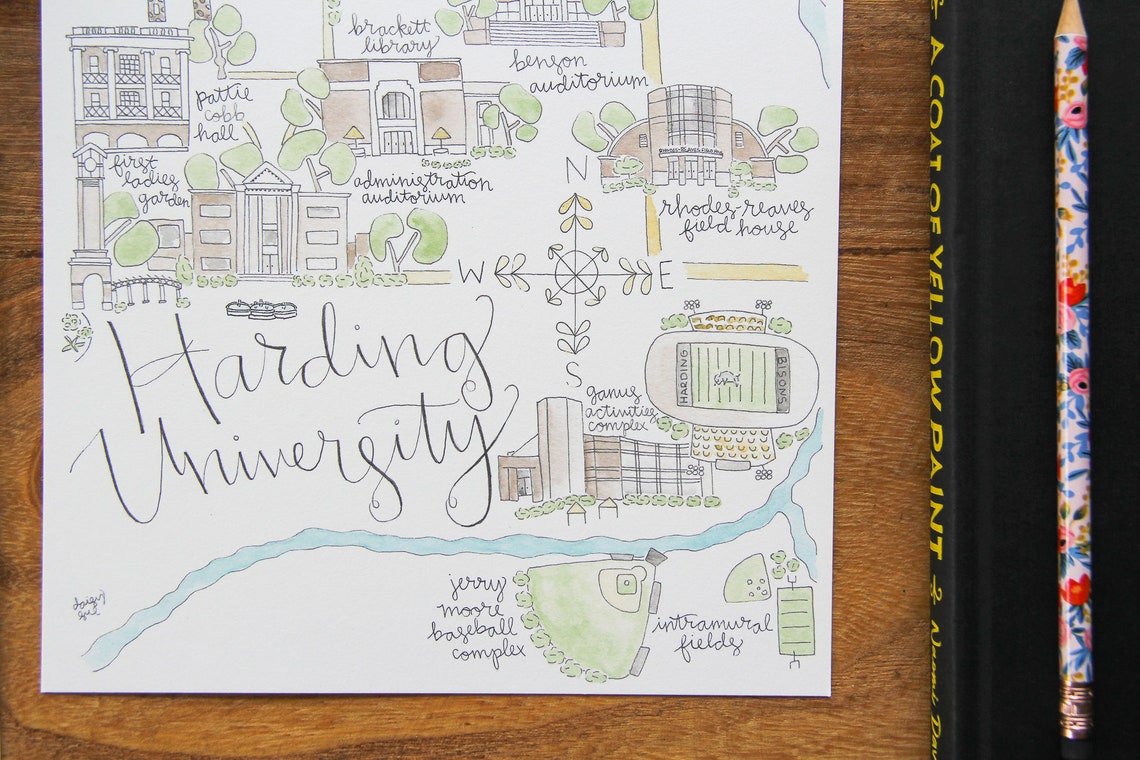 brackett
library
benson
auditorium
pattie
cobb
hall
first
ladies
garden
administration
auditorium
RHODES-REAVES FIELD HOUSE
rhodes-reaves
field house
N
W
E
S
Harding
University
HARDING
BISONS
ganus
activities
complex
jerry
moore
baseball
complex
intramural
fields
A COAT OF YELLOW PAINT